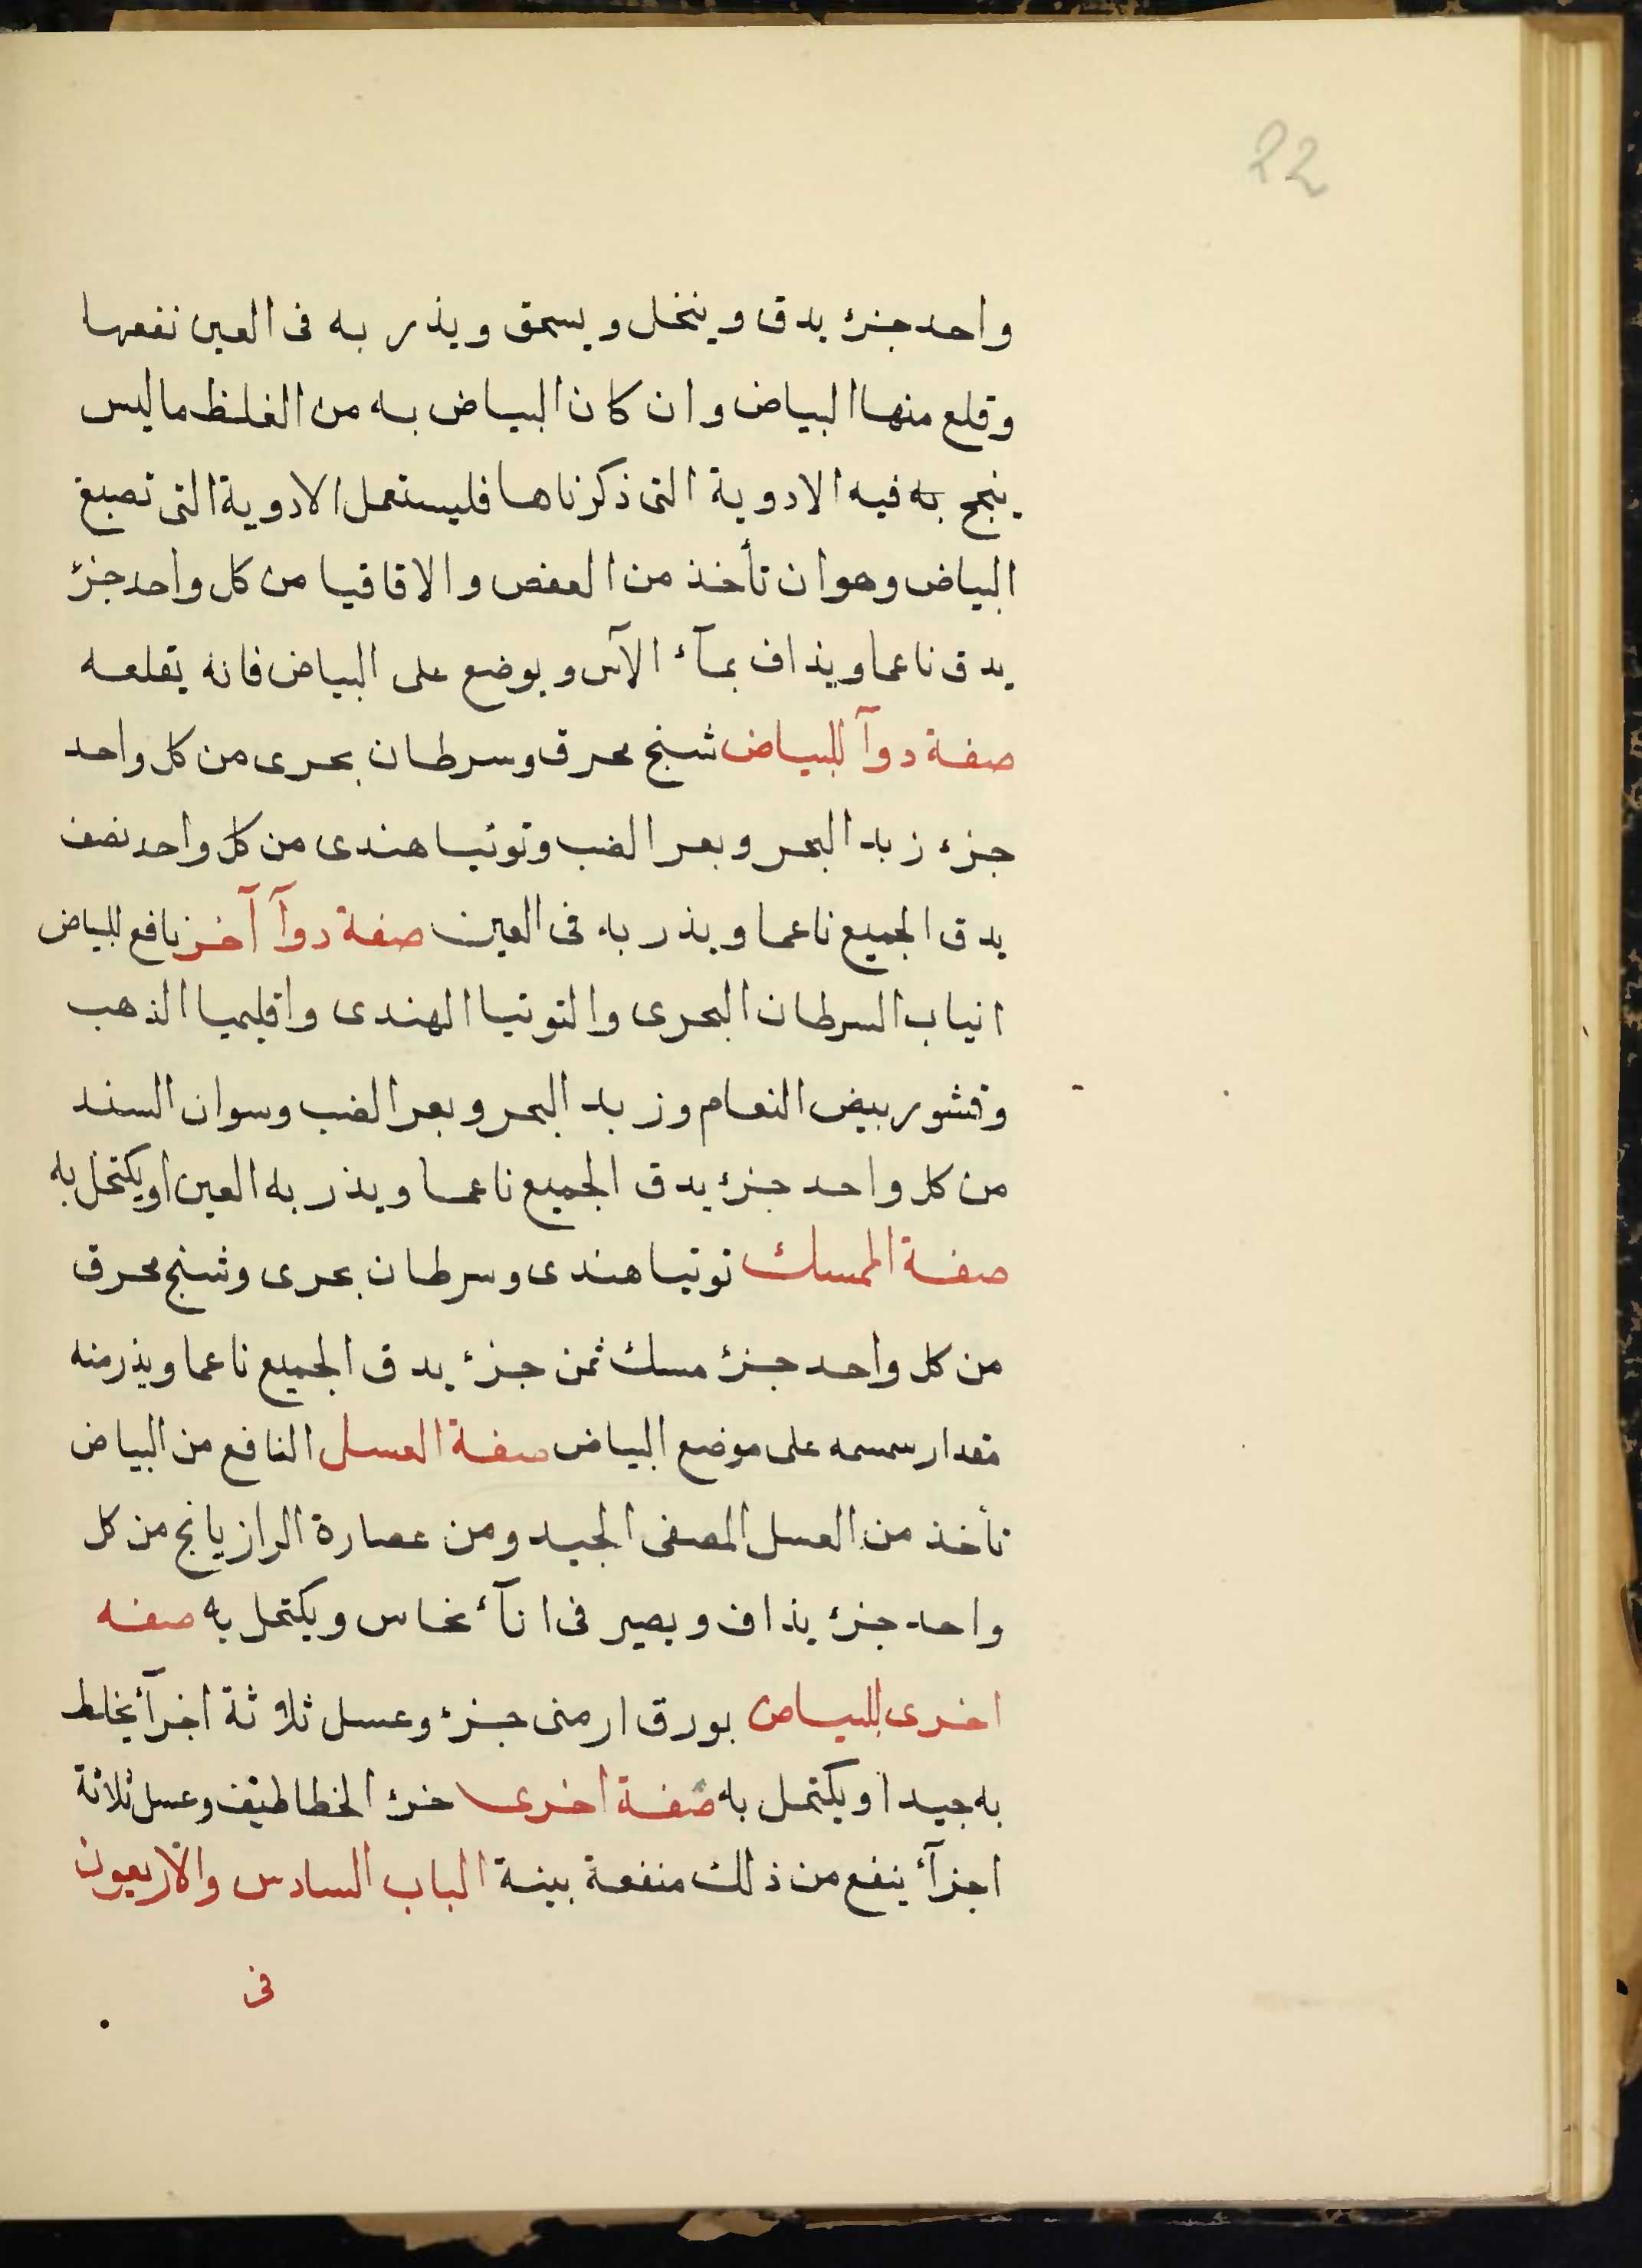 22
واحد جزئ يدق وينخل ويسحق ويذر به فى العين نفعها
وقلع منها البياض وان كان البياض به من الغلظ ماليس
ينجح به فيه الادوية التى ذكرناها فليستعمل الادوية التى تصبغ
البياض وهو ان تأخذ من العفص والاقاقيا من كل واحد جزئ
يدق ناعما ويذاف بمآء الآس ويوضع على البياض فانه يقلعه
صفة دوآ للبياض شنج محرق وسرطان بحرى من كل واحد
جزء زبد البحر وبعر الضب وتوتيا هندى من كل واحد نصف
يدق الجميع ناعما ويذر به فى العين صفة دوآ آخر نافع للبياض
انياب السرطان البحرى والتوتيا الهندى واقليميا الذهب
وقشور بيض النعام وزبد البحر وبعر الضب وسوان السند
من كل واحد جزئ يدق الجميع ناعما ويذر به العين او يكتحل به
صفة الممسك توتيا هندى وسرطان بحرى وشنج محرق
من كل واحد جزئ مسك ثمن جزء يدق الجميع ناعما ويذر منه
مقدار سمسمه على موضع البياض صفة العسل النافع من البياض
تأخذ من العسل المصفى الجيد ومن عصارة الرازيانج من كل
واحد جزئ يذاف ويصير فى انآء نحاس ويكتحل به صفه
اخرى للبياض بورق ارمنى جزء وعسل ثلاثة اجزآء يخلط
به جيدا ويكتحل به صفة اخرى خرئ الخطاطيف وعسل ثلاثة
اجزآء ينفع من ذلك منفعة بينة الباب السادس والاربعون
فى